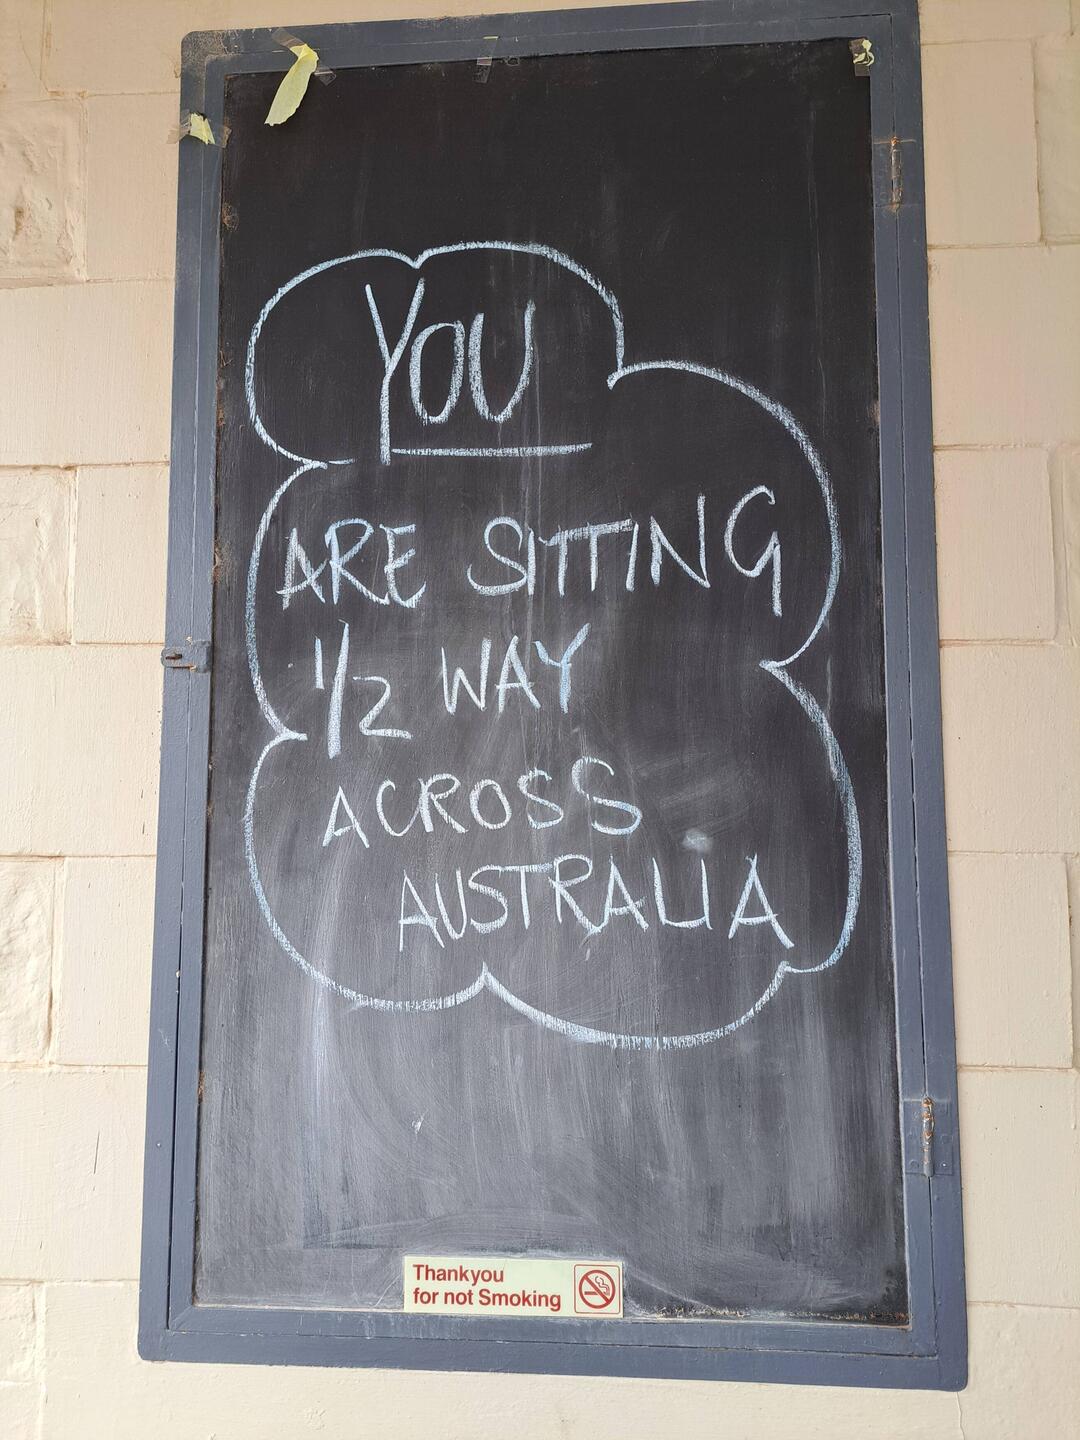 YOU
ARE SITTING
1/2 WAY
ACROSS
AUSTRALIA
Thankyou
for not Smoking